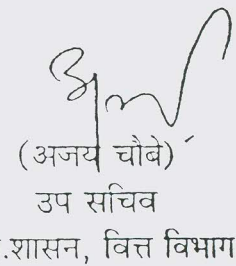 (अजय चौबे)
उप सचिव
.शासन, वित्त विभाग